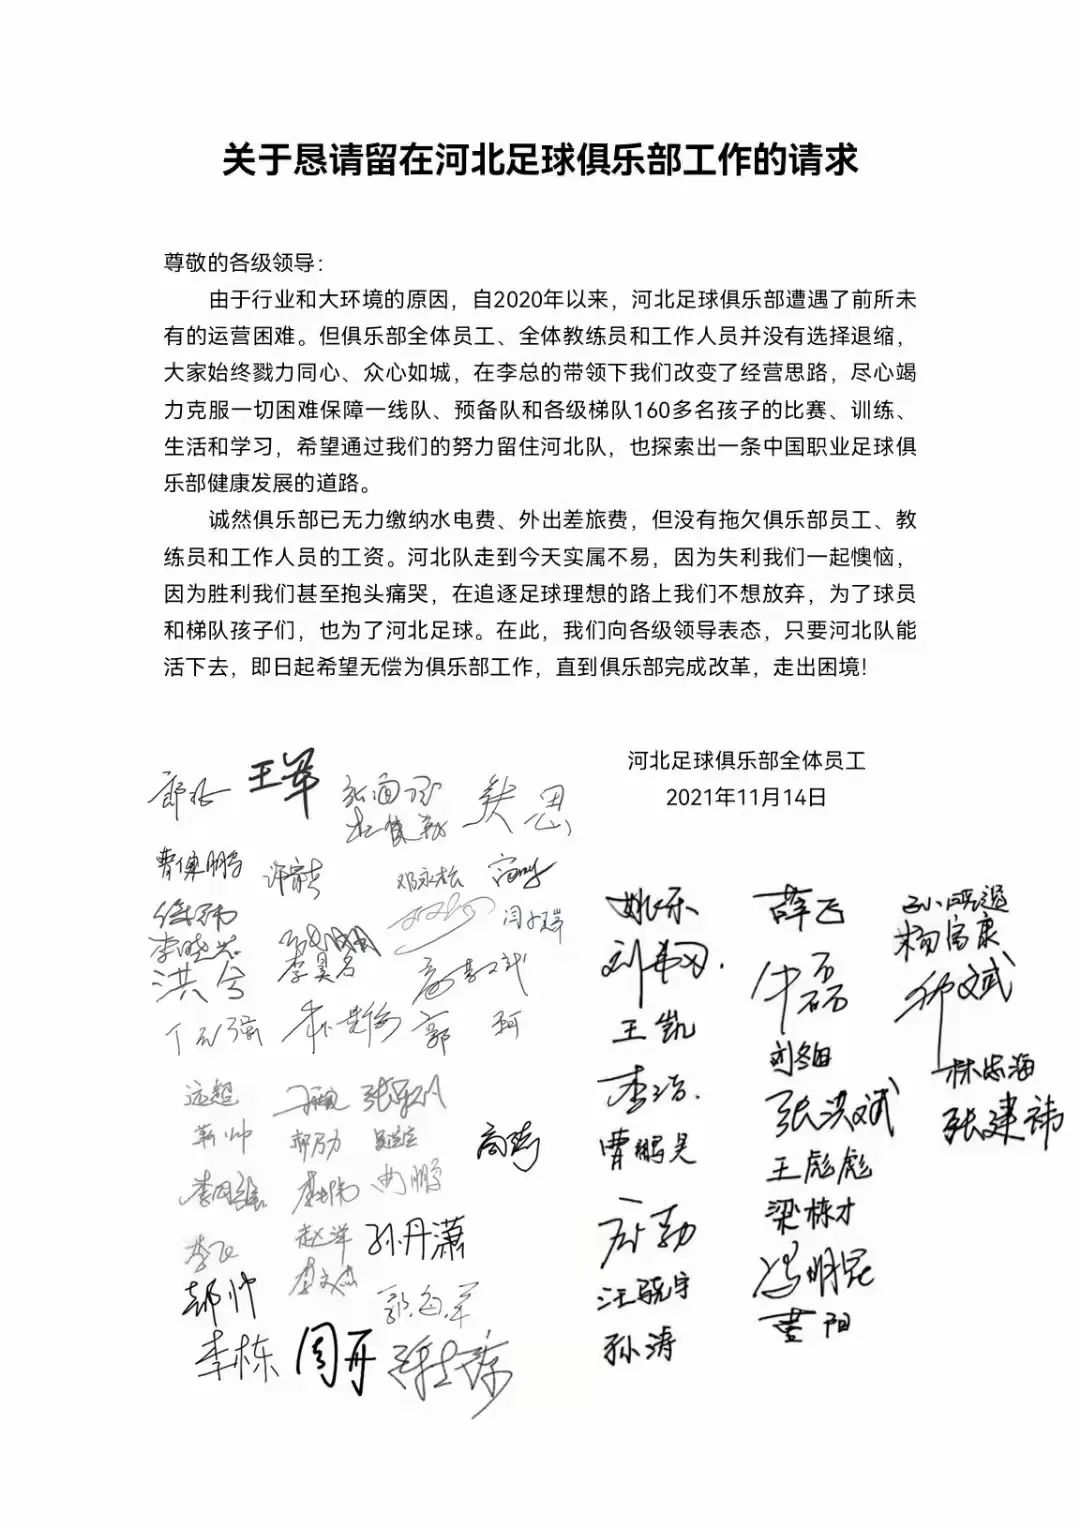 关于恳请留在河北足球俱乐部工作的请求
尊敬的各级领导：
由于行业和大环境的原因，自2020年以来，河北足球俱乐部遭遇了前所未
有的运营困难。但俱乐部全体员工、全体教练员和工作人员并没有选择退缩，
大家始终戮力同心、众心如城，在李总的带领下我们改变了经营思路，尽心竭
力克服一切困难保障一线队、预备队和各级梯队160多名孩子的比赛、训练、
生活和学习，希望通过我们的努力留住河北队，也探索出一条中国职业足球俱
乐部健康发展的道路。
诚然俱乐部已无力缴纳水电费、外出差旅费，但没有拖欠俱乐部员工、教
练员和工作人员的工资。河北队走到今天实属不易，因为失利我们一起懊恼，
因为胜利我们甚至抱头痛哭，在追逐足球理想的路上我们不想放弃，为了球员
和梯队孩子们，也为了河北足球。在此，我们向各级领导表态，只要河北队能
活下去，即日起希望无偿为俱乐部工作，直到俱乐部完成改革，走出困境!
河北足球俱乐部全体员工
2021年11月14日
王军
邓永松
薛飞
杨富康
李昊名
洪兮
王凯
林忠海
远超
张洪斌
张建祎
靳帅
曹鹏昊
曲鹏
王彪彪
梁栋才
赵洋
孙丹潇
李飞
李文杰
冯明冠
郝帅
汪骁宇
董阳
李栋
周冉
孙涛